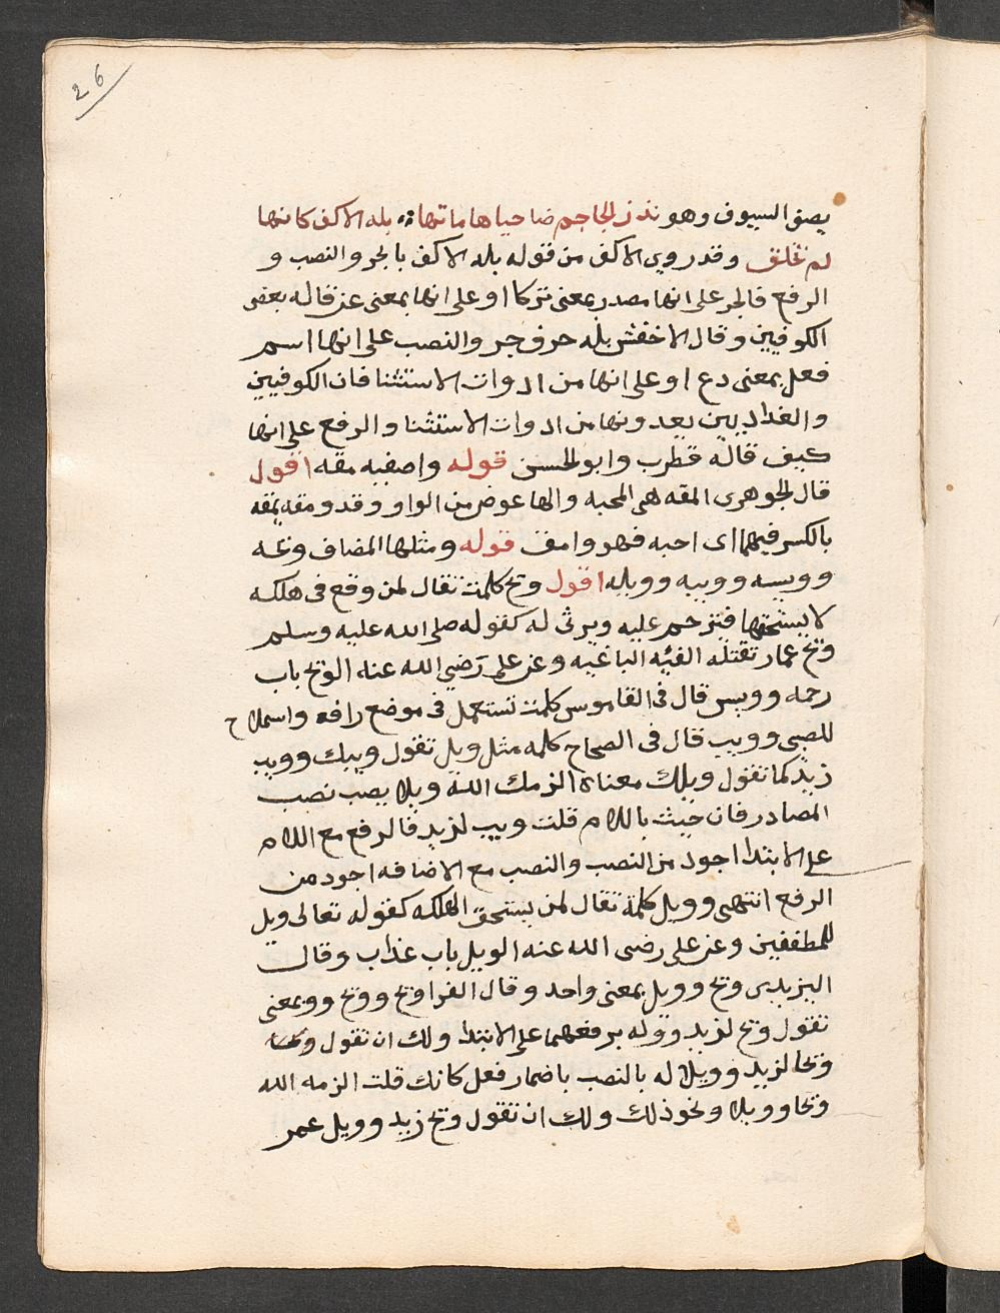 26
يصف السيوف وهو تذر الجاجم ضاحيا هاماتها ؞ بله الاكف كانها
لم تخلق وقد روي الاكف من قوله بله الاكف بالجر والنصب و
الرفع فالجر على انها مصدر بمعنى تركا او على انها بمعنى عن قاله بعض
الكوفيين وقال الاخفش بله حرف جر والنصب على انها اسم
فعل بمعنى دع او على انها من ادوات الاستثنا فان الكوفيين
والبغداديين يعدونها من ادوات الاستثنا والرفع على انها
كيف قاله قطرب وابو الحسن قوله واصفيه مقه اقول
قال الجوهرى المقه هى المحبه والها عوض من الواو وقد ومقه يمقه
بالكسر فيهما اى احبه فهو وامق قوله ومثلها المضاف ويحه
وويسه وويبه وويله اقول ويح كلمت تقال لمن وقع فى هلكه
لا يستحقها فيترحم عليه ويرثى له كقوله صلى الله عليه وسلم
ويح عمار تقتله الفيه الباغيه وعن على رضي الله عنه الويح باب
رحمه وويس قال فى القاموس كلمت تستعمل فى موضع رافه واستملاح
للصبى وويب قال فى الصحاح كلمه مثل ويل تقول ويبك وويب
زيد كما تقول ويلك معناه الزمك الله ويلا نصب نصب
المصادر فان جيت باللام قلت ويب لزيد فالرفع مع اللام
على الابتدا اجود من النصب والنصب مع الاضافه اجود من
الرفع انتهى وويل كلمة تقال لمن يستحق الهلكه كقوله تعالى ويل
للمطففين وعن على رضى الله عنه الويل باب عذاب وقال
اليزيدى ويح وويل بمعنى واحد وقال الفرا ويح وويح بمعنى
تقول ويح لزيد وويل له برفعهما على الابتدا ولك ان تقول
ويحا لزيد وويلا له بالنصب باضمار فعل كانك قلت الزمه الله
ويحا وويلا ونحو ذلك ولك ان تقول ويح زيد وويل عمر